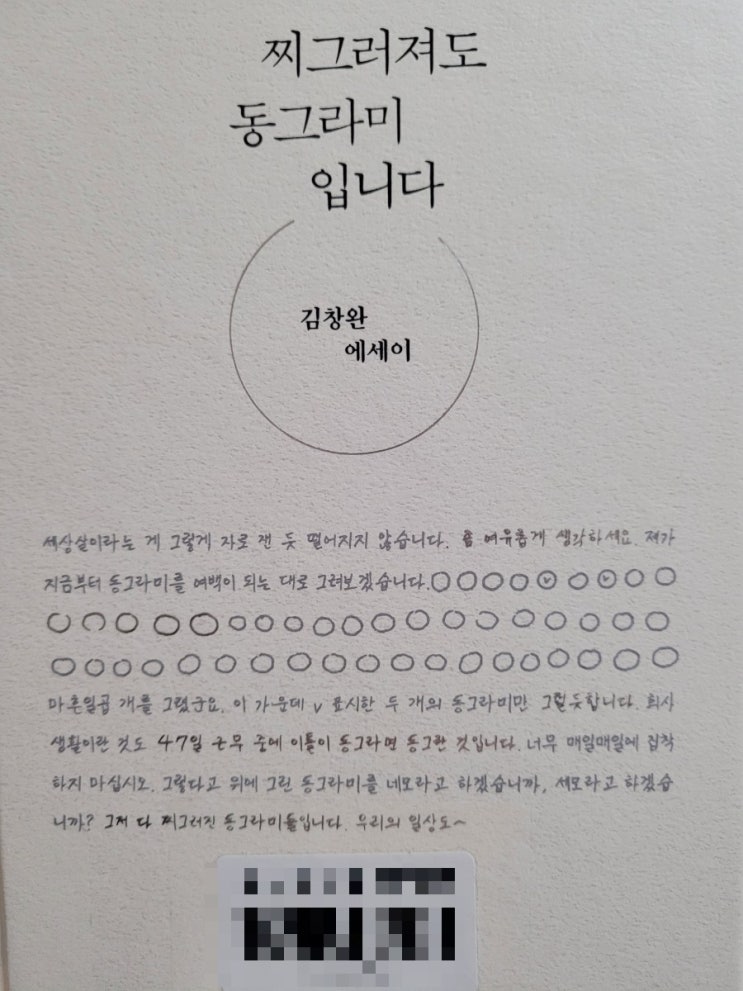 찌그러져도
동그라미
입니다
김창완
에세이
세상살이라는 게 그렇게 자로 잰 듯 떨어지지 않습니다. 좀 여유롭게 생각하세요. 제가
지금부터 동그라미를 여백이 되는 대로 그려보겠습니다.
마흔일곱 개를 그렸군요. 이 가운데 v 표시한 두 개의 동그라미만 그럴듯합니다. 회사
생활이란 것도 47일 근무 중에 이틀이 동그라면 동그란 것입니다. 너무 매일매일에 집착
하지 마십시오. 그렇다고 위에 그린 동그라미를 네모라고 하겠습니까, 세모라고 하겠습
니까? 그저 다 찌그러진 동그라미들입니다. 우리의 일상도~